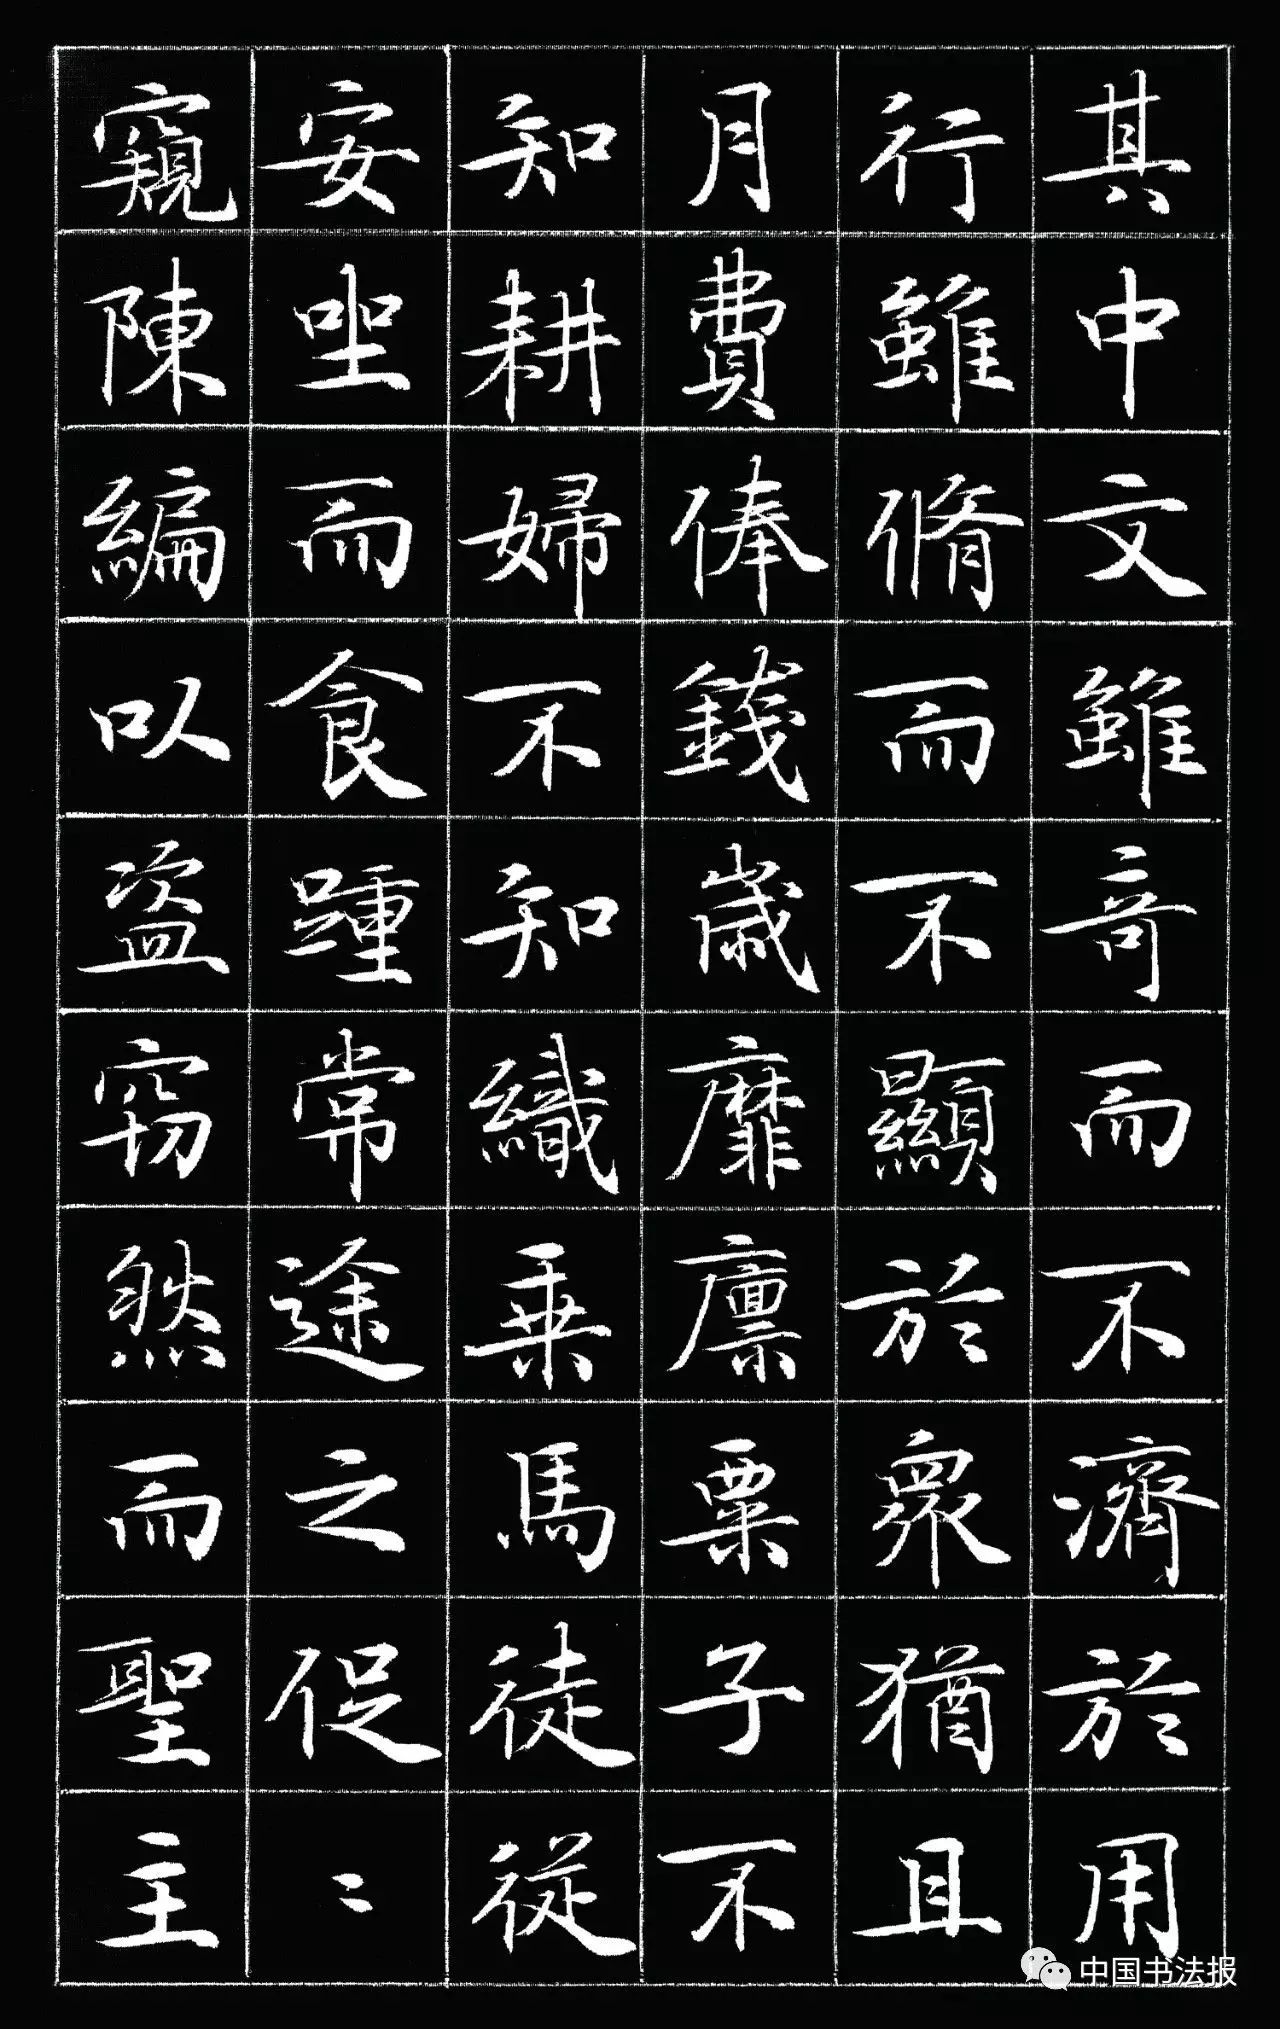 其中文雖奇而不濟於用
行雖脩而不顯於衆猶且
月費俸錢歲靡廪粟子不
知耕婦不知織乗馬徒從
安坐而食踵常途之促〻
窺陳編以盗窃然而聖主
中国书法报